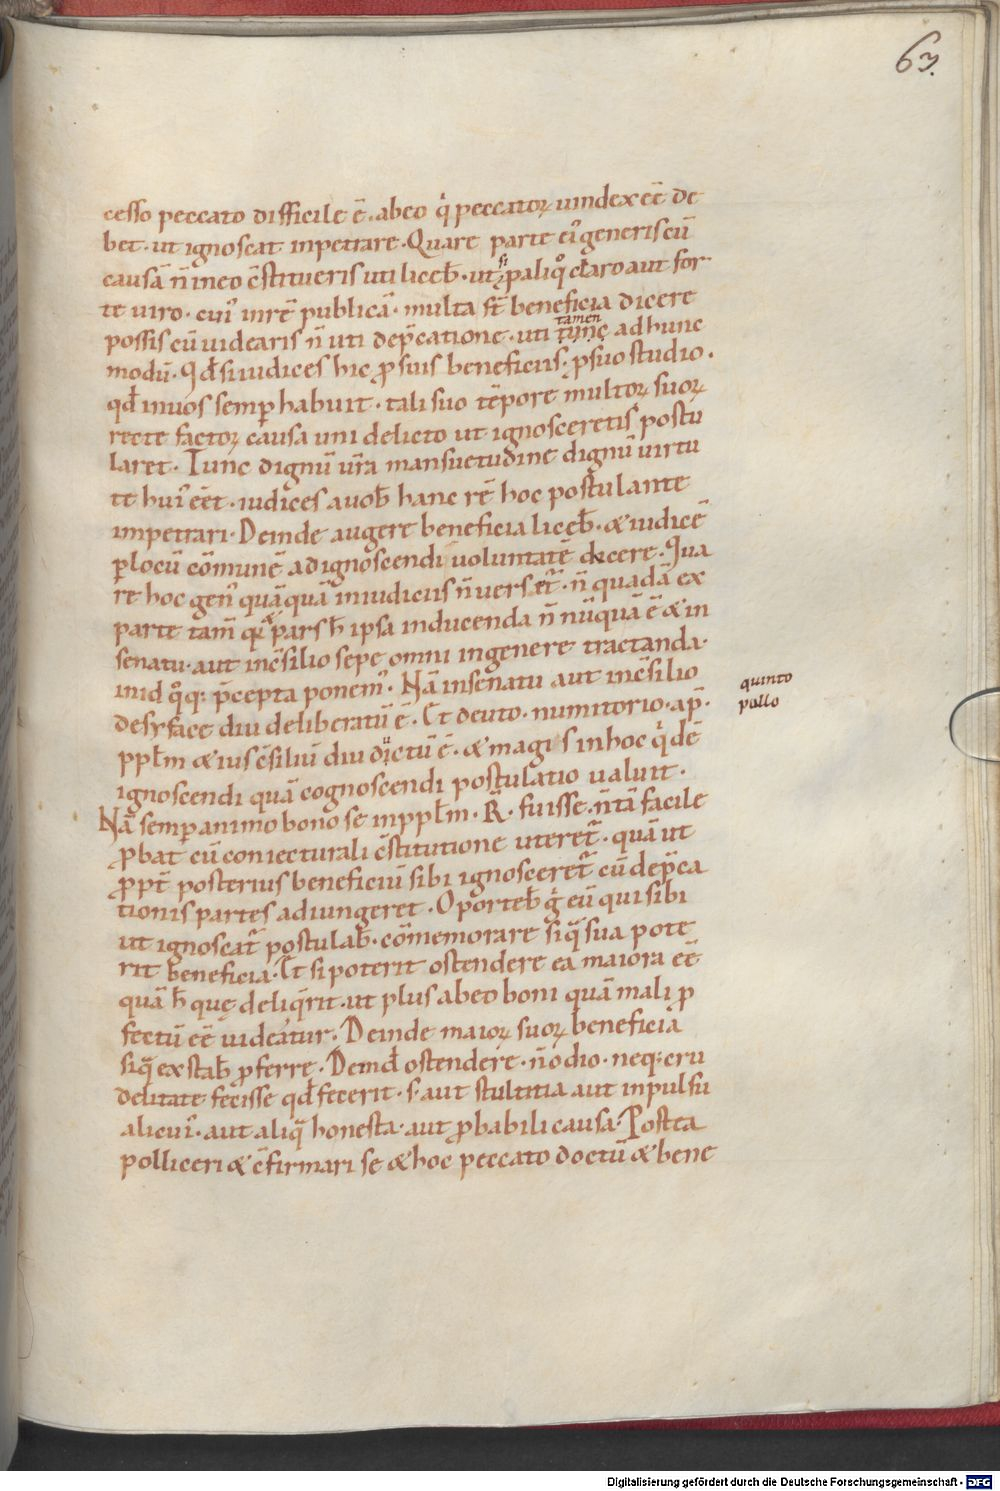 63.
cesso peccato difficile ē. abeo qͥ peccatoꝝ uindex eē de
bet. ut ignoscat inpetrare. Quare parte eiꝰ generis cū
causā n̄ in eo c̄stitueris uti liceb̄. ut si p aliq̊ claro aut for
te uiro. cuiꝰ in rē publicā. multa st̄ beneficia dicere
possis cū uidearis n̄ uti dep̄catione. uti tamen tunc ad hunc
modū. Qd̄ si iudices hic ꝓ suis beneficiis. ꝓ suo studio.
qd̄ in uos semꝑ habuit. tali suo tēpore multoꝝ suoꝝ
recte factoꝝ causa uni delicto ut ignosceretis postu
laret. Tunc dignū ūra mansuetudine dignū uirtu
te huiꝰ eēt. iudices a uob̄ hanc rē hoc postulante
impetrari. Deinde augere beneficia liceb̄. & iudicē
ꝑ locū cōmunē ad ignoscendi uoluntatē dicere. Qua
re hoc genꝰ quāquā in iudiciis n̄ uersetͬ. n̄ quadā ex
parte tam̄ q& pars h̄ ipsa inducenda n̄ nūquā ē & in
senatu. aut in c̄silio sepe omni in genere tractanda.
in id q̊q; p̄cepta ponemꝰ. Nā in senatu aut in c̄silio
de syface diu deliberatū ē. Et de uto. numitorio. ap̄.
ppl̄m & ius c̄siliū diu dictū ē. & magis in hoc qͥdē
quinto
pullo
ignoscendi quā cognoscendi postulatio ualuit.
Nā semꝑ animo bono se in ppl̄m. R̄. fuisse. n̄ tā facile
ꝓbat cū coniecturali c̄stitutione uteretͬ. quā ut
ꝓpt̄ posterius beneficiū sibi ignosceretͬ cū dep̄ca
tionis partes adiungeret. Oporteb̄ g̊ eū qui sibi
ut ignoscatͬ postulab̄. cōmemorare siq̄ sua pote
rit beneficia. Et si poterit ostendere ea maiora eē
quā h̄ quę deliq̄rit. ut plus ab eo boni quā mali ꝓ
fectū eē uideatur. Deinde maioꝝ suoꝝ beneficia
siq̄ exstab̄ ꝓferre. Deind̄ ostendere. n̄ odio. neq; cru
delitate fecisse qd̄ fecerit. s. aut stultitia aut inpulsu
alicuiꝰ. aut aliq̄ honesta. aut ꝓbabili causa. Postea
polliceri & c̄firmari se & hoc peccato doctū & bene
Digitalisierung gefördert durch die Deutsche Forschungsgemeinschaft - DFG